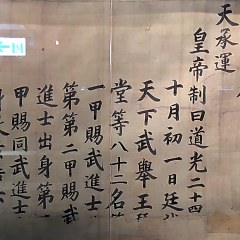 天承運
皇帝制曰道光二十四
十月初一日廷
天下武舉王
堂等八十二名
一甲賜武進士
第第二甲賜武
進士出身第
甲賜同武進士